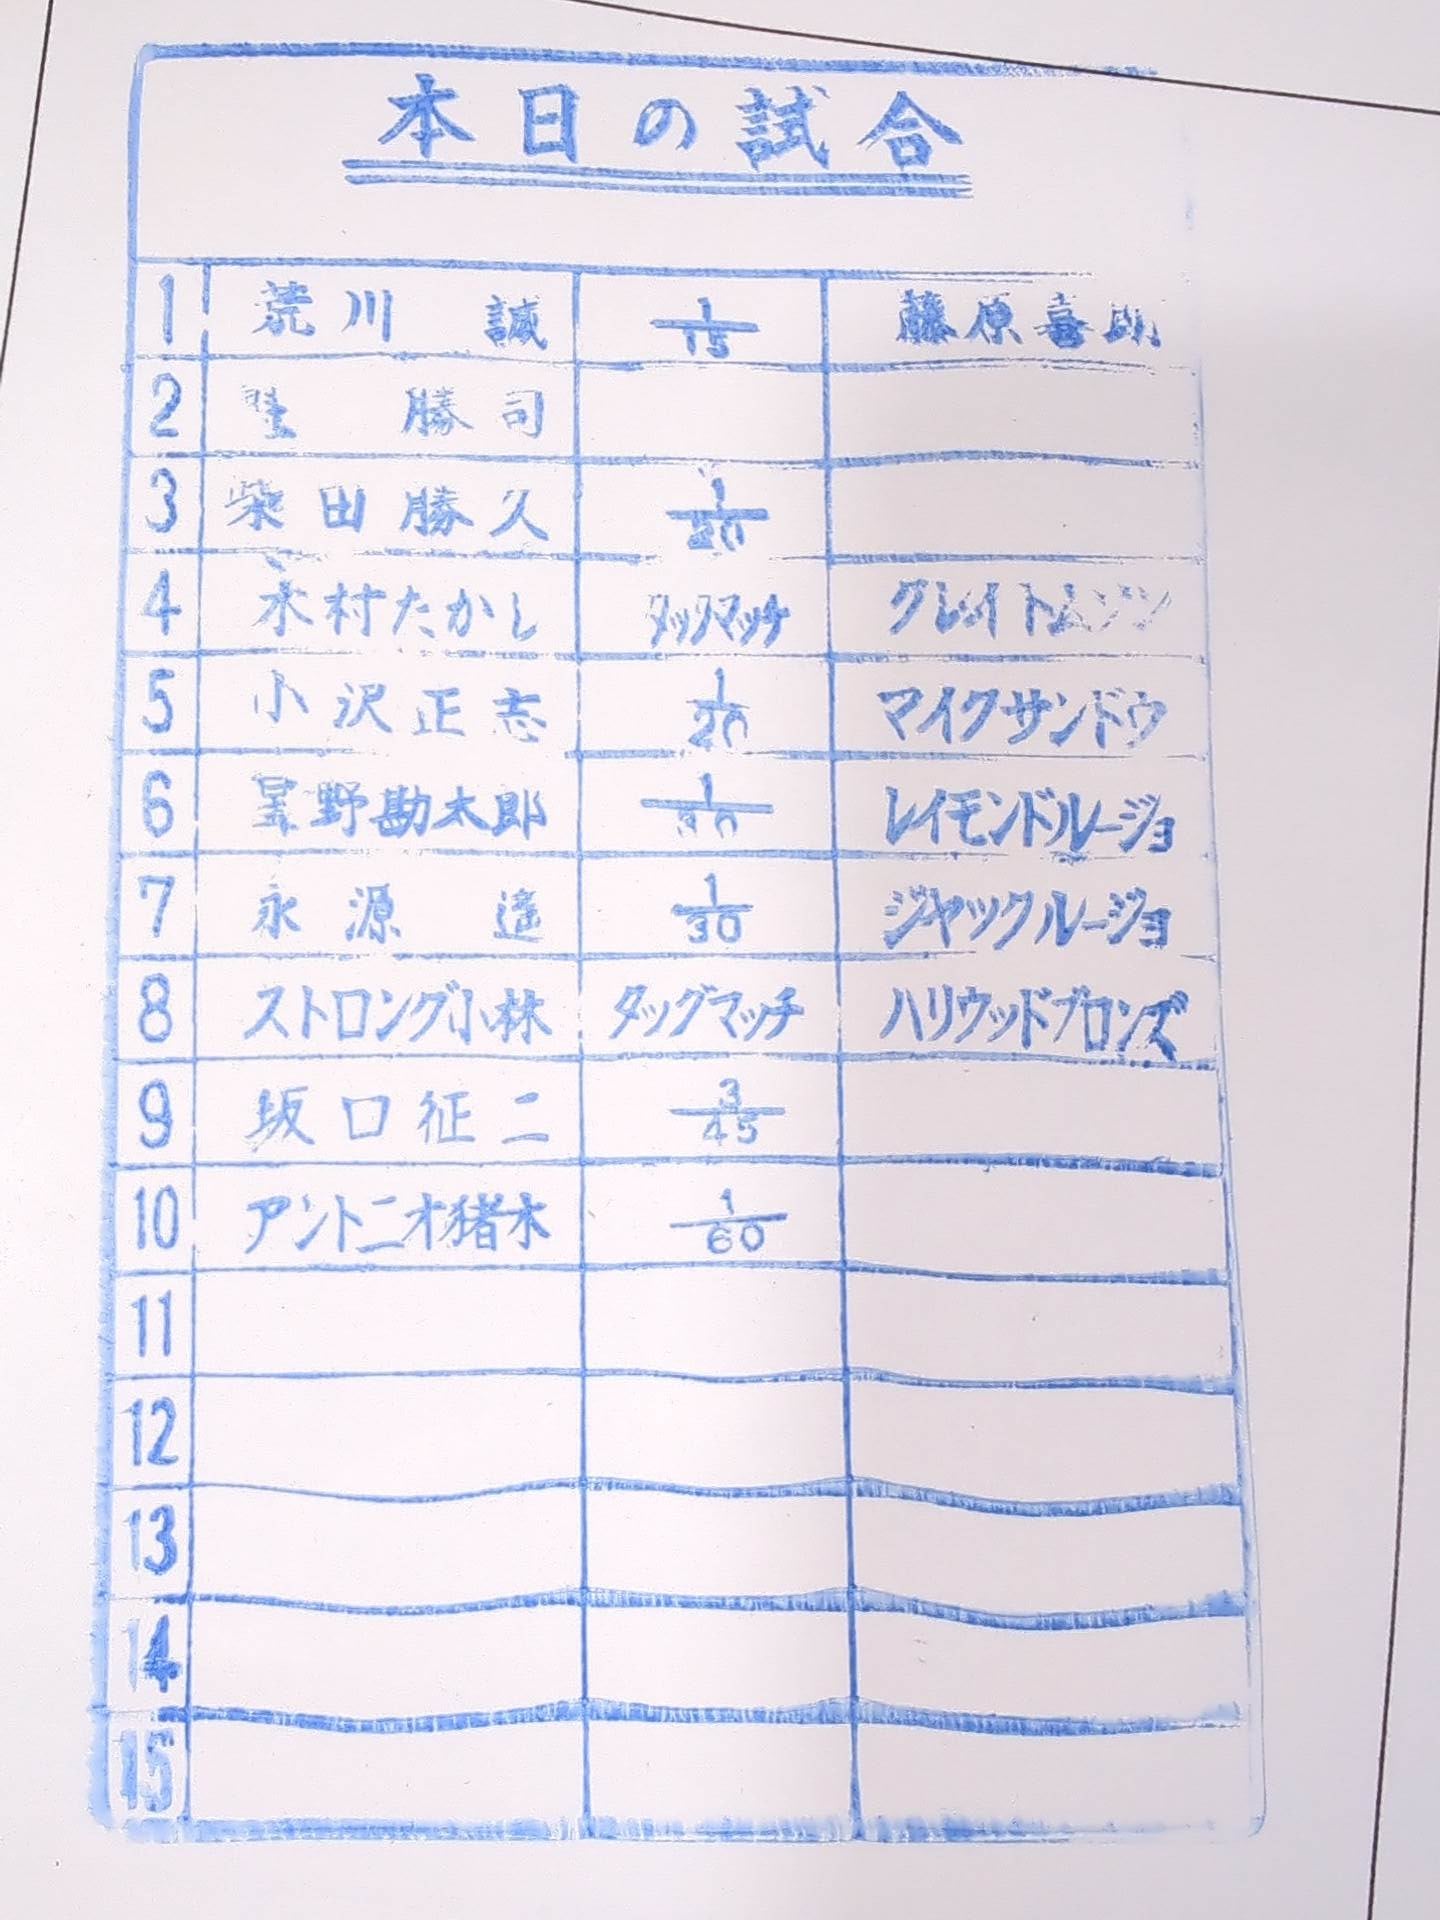 本日の試合
1 荒川 誠 1/15 藤原喜明
2 勝司
3 柴田勝久 1/20
4 木村たかし タッグマッチ グレイト
5 小沢正志 1/20 マイクサンドウ
6 星野勘太郎 1/30 レイモンドルージョ
7 永源 遥 1/30 ジャックルージョ
8 ストロング小林 タッグマッチ ハリウッドブロンズ
9 坂口征二 3/45
10 アントニオ猪木 1/60
11
12
13
14
15